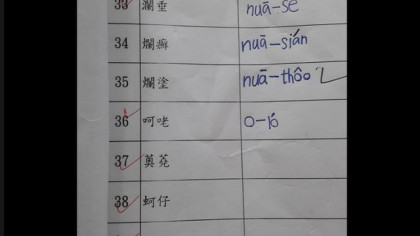 33 瀾垂 nuā-sê
34 爛癬 nuā-sián
35 爛塗 nuā-thôo
36 呵咾 o-ló
37 莧菜
38 蚵仔